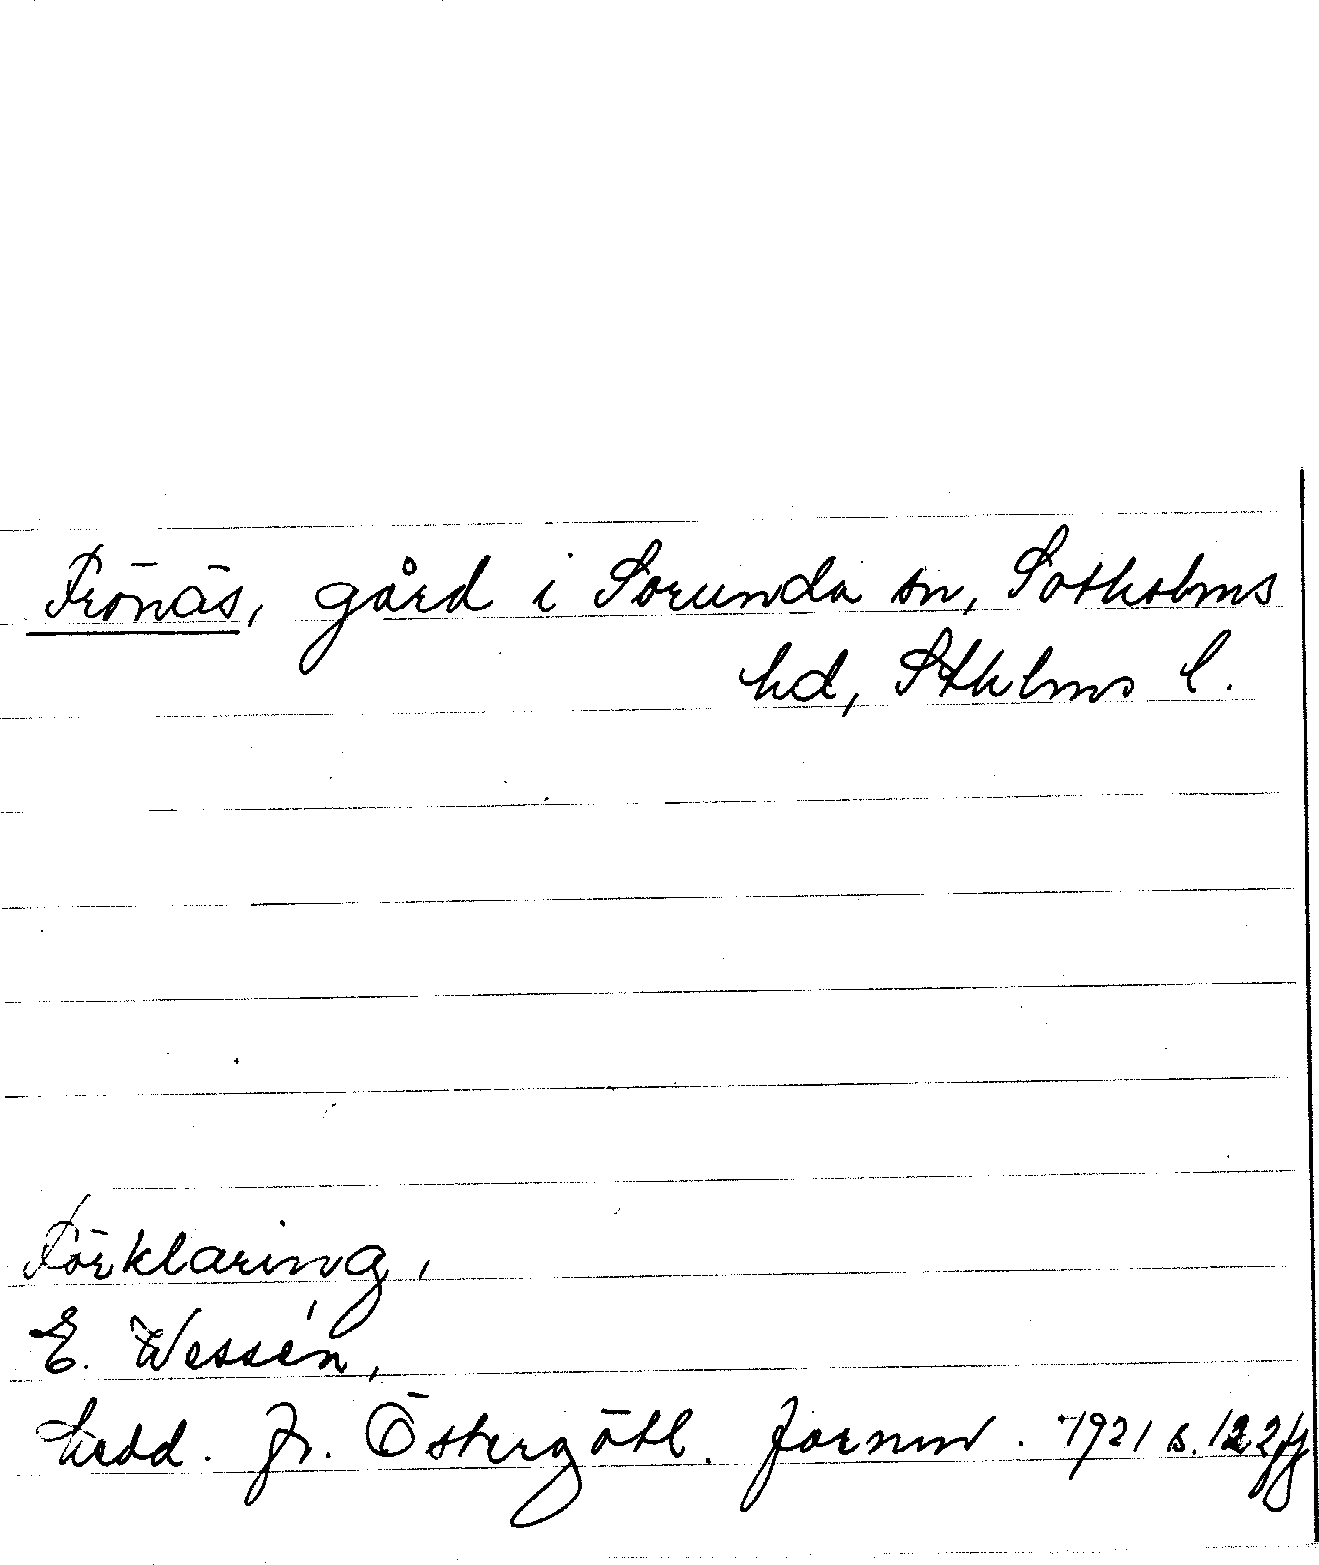 Frönäs, gård i Sorunda sn, Sotholms
hd, Sthlms l.
Förklaring,
E. Wessén,
Medd. fr. Östergötl. fornm. 1921 s. 122ff